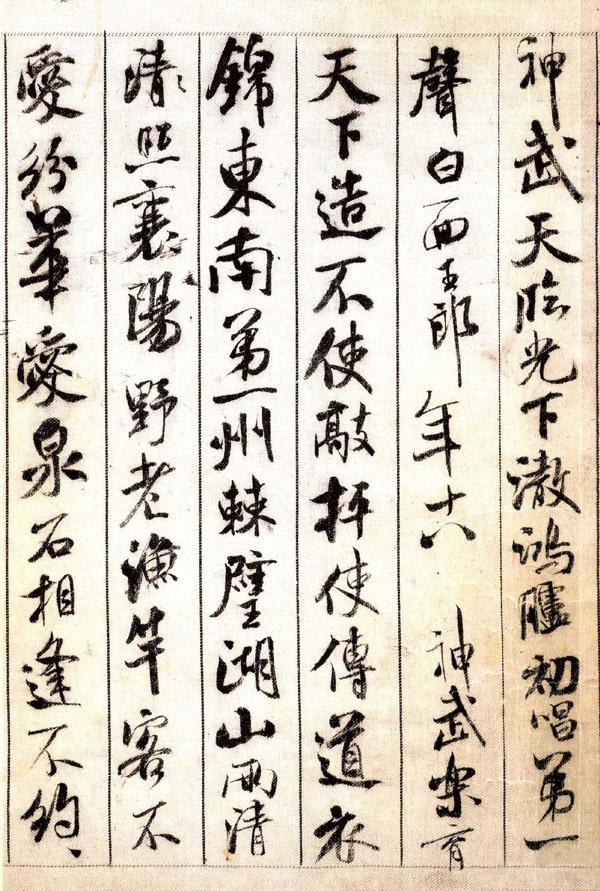 神武天臨光下澈鴻臚初唱第一
聲白面王郎年十八神武樂育
天下造不使敲枰使傳道衣
錦東南第一州棘璧湖山兩清
清照襄陽野老漁竿客不
愛紛華愛泉石相逢不約、